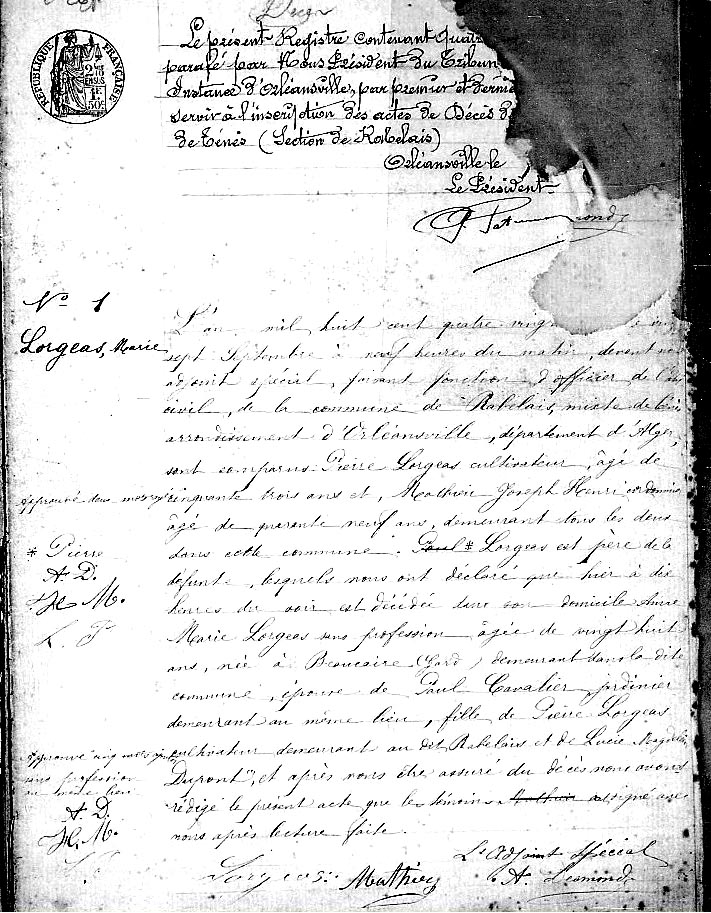 RÉPUBLIQUE FRANÇAISE
2/10 EN SUS
1F 50c
Le présent Registre contenant
parafé par Nous Président du
Instance d'Orléansville, par premier et
servir à l'inscription des actes de Décès
de Ténès (Section de Rabelais)
Orléansville le
Le Président
No 1
Lorgeas, Marie
L'an mil huit cent quatre
sept Septembre à neuf heures du matin, devant
adjoint spécial, faisant fonction d'officier de
civil, de la commune de Rabelais, mixte de
arrondissement d'Orléansville, département d'Alger,
sont comparus Pierre Lorgeas cultivateur, âgé de
cinquante trois ans et, Mathieu Joseph Henri
âgé de quarante neuf ans, demeurant tous les deux
dans cette commune. Paul * Lorgeas est père de la
défunte, lesquels nous ont déclaré que hier à dix
heures du soir est décédée dans son domicile Anne
Marie Lorgeas sans profession âgée de vingt huit
ans, née à Beaucaire (Gard) demeurant dans la dite
commune, épouse de Paul Cavalier, jardinier
demeurant au même lieu, fille de Pierre Lorgeas
cultivateur demeurant au dit Rabelais et de Lucie
Dupont, et après nous être assuré du décès nous avons
rédigé le présent acte que les témoins signé avec
nous après lecture faite.
approuvé deux mots
* Pierre
A. D.
H. M.
L. P.
approuvé cinq mots
sans profession
au même lieu
A. D.
H. M.
L'Adjoint Spécial
Lorgeas
Mathieu